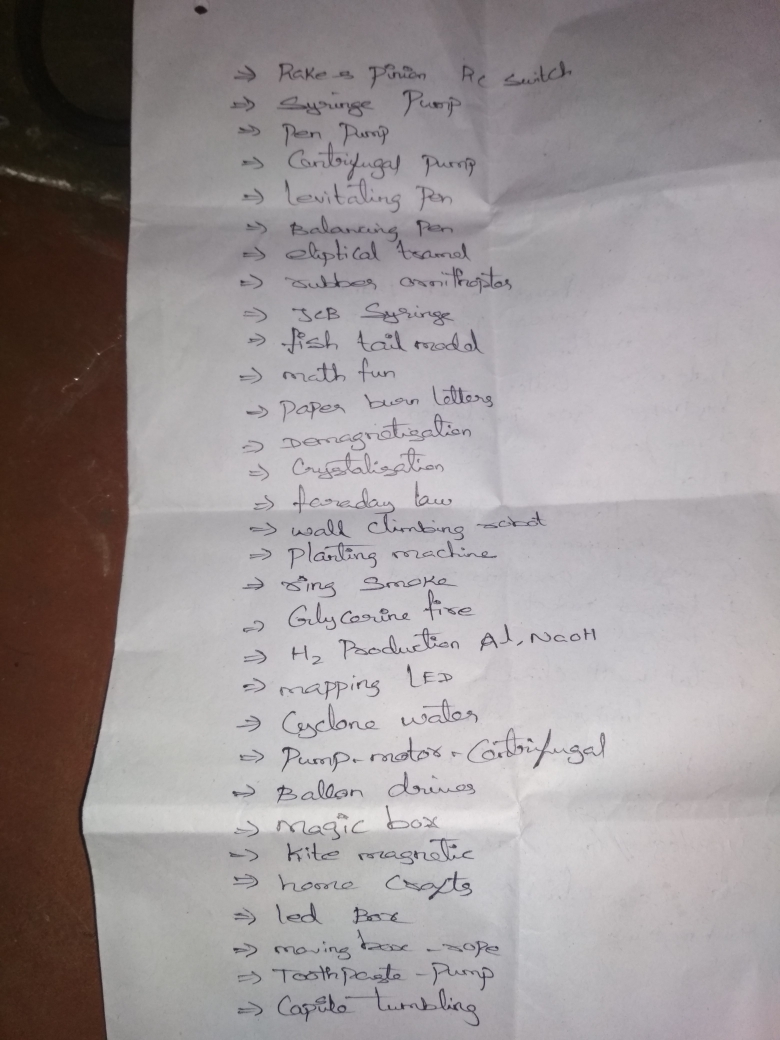 ⇒ Rake & Pinion Rc switch
⇒ Syringe Pump
⇒ Pen Pump
⇒ Centrifugal Pump
⇒ Levitating Pen
⇒ Balancing Pen
⇒ eliptical tramel
⇒ rubber ornithopter
⇒ JCB Syringe
⇒ fish tail model
⇒ math fun
⇒ Paper burn letters
⇒ Demagnetisation
⇒ Crystalisation
⇒ faraday law
⇒ wall climbing robot
⇒ Planting machine
⇒ ring smoke
⇒ Glycerine fire
⇒ H₂ Production Al, NaOH
⇒ mapping LED
⇒ Cyclone water
⇒ Pump-motor-Centrifugal
⇒ Ballon drives
⇒ magic box
⇒ kite magnetic
⇒ home Crafts
⇒ led Box
⇒ moving box - rope
⇒ Toothpaste - Pump
⇒ Capule tumbling